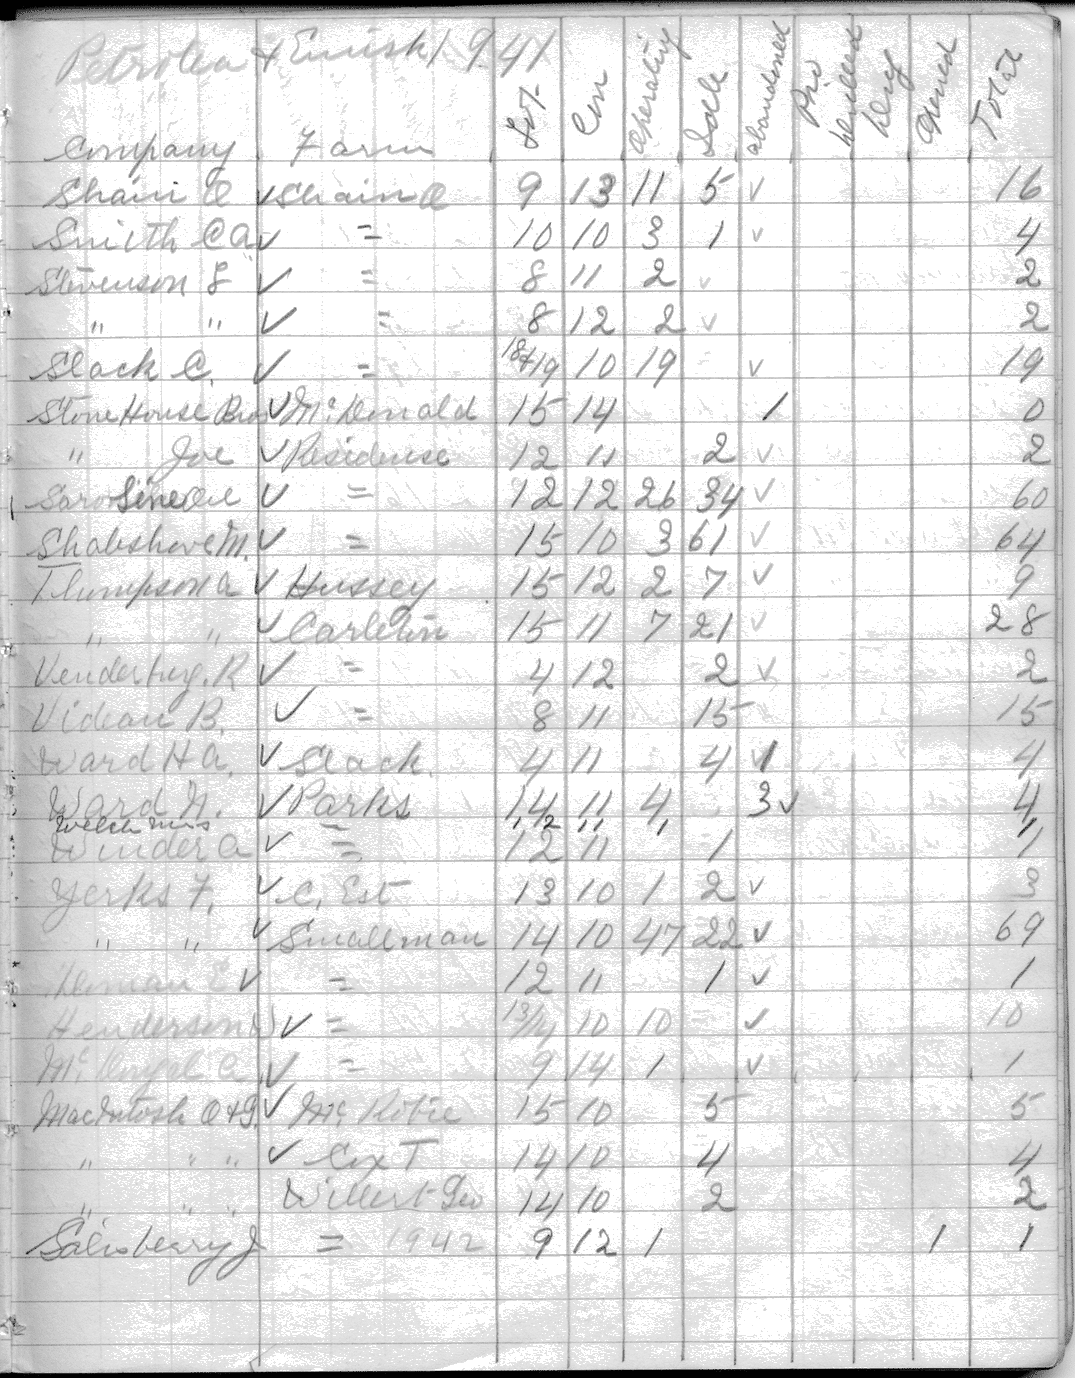 Petrolea & Ennisk 1941
Company Farm Lot Con Operating Idle abandoned Pro Drilled Dry Opened Total
Shain O ✓ Shain O 9 13 11 5 ✓ 16
Smith C A ✓ = 10 10 3 1 ✓ 4
Stevenson S ✓ = 8 11 2 ✓ 2
" " ✓ = 8 12 2 ✓ 2
Slack C. ✓ = 18&19 10 19 ✓ 19
Stone House Bros ✓ McDonald 15 14 1 0
" Joe ✓ Residense 12 11 2 ✓ 2
✓ = 12 12 26 34 ✓ 60
M. ✓ = 15 10 3 61 ✓ 64
Thompson A ✓ Hussey 15 12 2 7 ✓ 9
" " ✓ Carleton 15 11 7 21 ✓ 28
R ✓ = 4 12 2 ✓ 2
Videan B. ✓ = 8 11 15 15
Ward H A. ✓ Slack. 4 11 4 ✓ 1 4
Ward N. ✓ Parks 14 11 4 3 ✓ 4
Welch Mrs 12 11 1 1
Winder A ✓ = 12 11 1 1
Yerks F. ✓ C. Est 13 10 1 2 ✓ 3
" " ✓ Smallman 14 10 47 22 ✓ 69
E ✓ = 12 11 1 ✓ 1
Henderson ✓ = 13/14 10 10 ✓ 10
✓ = 9 14 1 ✓ 1
MacIntosh O & G. ✓ McRobie 15 10 5 5
" " " ✓ Cox T 14 10 4 4
" " " Willert Geo 14 10 2 2
Salisberry J = 1942 9 12 1 1 1